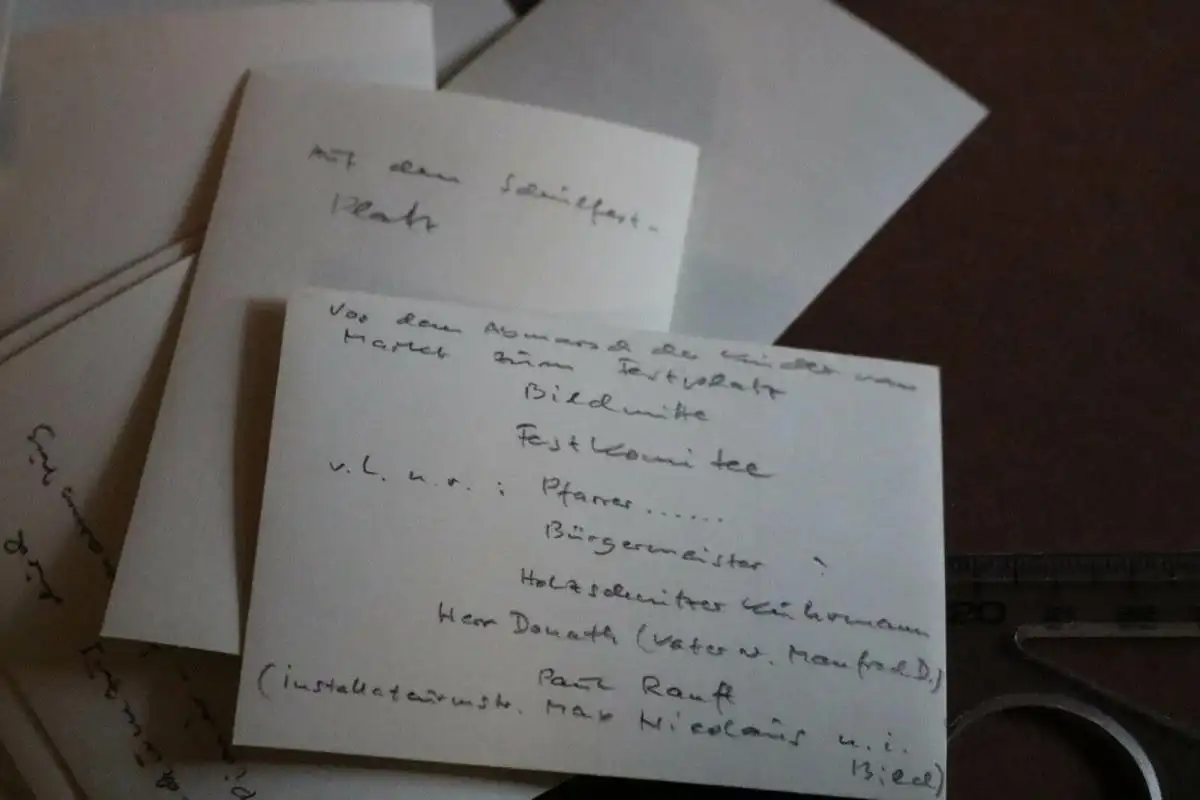 Auf dem Schulfest-
Platz
Vor dem Abmarsch der Kinder vom
Markt zum Festplatz
Bildmitte
Festkomitee
v. l. n. r. : Pfarrer ......
Bürgermeister ?
Holzschnitzer Kuhrmann
Herr Donath (Vater v. Manfred D.)
Paul Rauft
(Installateurmstr. Max Nicolaus n. i.
Bild)
20